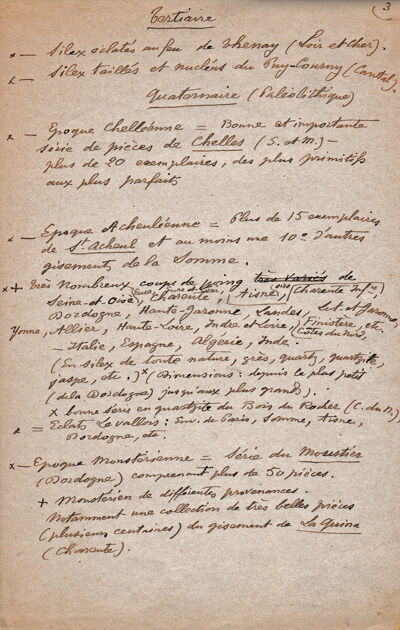 3
Tertiaire
x — Silex éclatés au feu de Thenay (Loir et Cher).
x — Silex taillés et nucléus du Puy-Courny (Cantal).
Quaternaire (Paléolithique)
x — Epoque Chelléenne = Bonne et importante
série de pièces de Chelles (S. et M.) —
plus de 20 exemplaires, des plus primitifs
aux plus parfaits
x — Epoque Acheuléenne = Plus de 15 exemplaires
de St Acheul et au moins une 10e d'autres
gisements de la Somme.
x + Très Nombreux coups de poing très variés de
Seine-et-Oise, Eure, Charente, Aisne, Oise, Charente Infre
Dordogne, Haute-Garonne, Landes, Lot et Garonne,
Yonne, Allier, Haute-Loire, Indre et Loire, Finistère, etc.
Côtes du Nord
— Italie, Espagne, Algérie, Inde.
(En silex de toute nature, grès, quartz, quartzite,
jaspe, etc.) x (Dimensions : depuis le plus petit
(de la Dordogne) jusqu'aux plus grands).
x bonne série en quartzite du Bois du Rocher (C. du N.)
x = Eclats Levallois : Env. de Paris, Somme, Aisne,
Dordogne, etc.
x — Epoque Moustérienne = Série du Moustier
(Dordogne) comprenant plus de 50 pièces.
+ Moustérien de différentes provenances.
Notamment une collection de très belles pièces
(plusieurs centaines) du gisement de La Quina
(Charente).